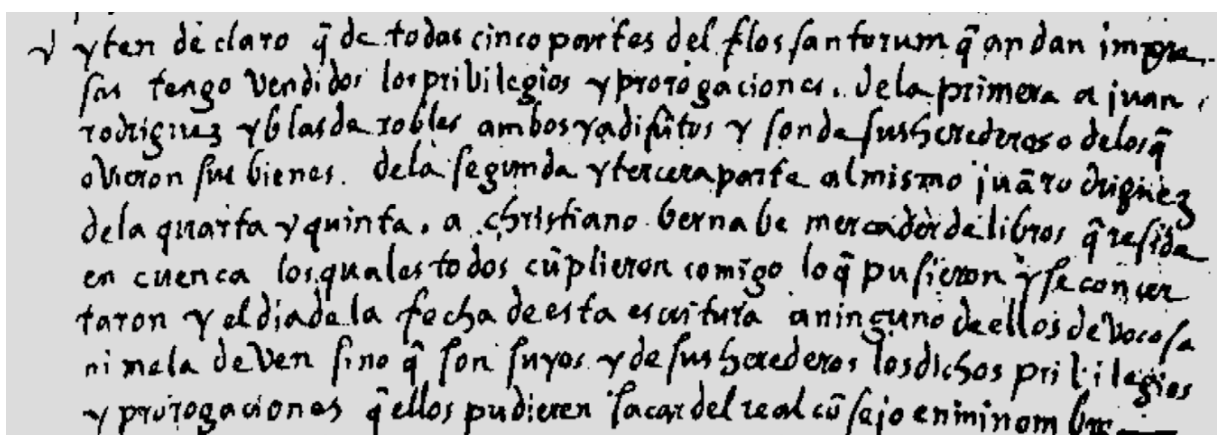 yten declaro q̃ de todas cinco partes del flos santorum q̃ andan impre
sas tengo vendidos los pribilegios y prorogaciones. dela primera a juan
rodriguez y blas de robles ambos ya difũtos y son de sus herederos o delos q̃
ovieron sus bienes. dela segunda y tercera parte al mismo juã rodriguez
dela quarta y quinta. a christiano bernabe mercader de libros q̃ reside
en cuenca los quales todos cũplieron comigo lo q̃ pusieron y se concer
taron y el dia de la fecha de esta escritura a ninguno de ellos devo cosa
ni me la deven sino q̃ son suyos y de sus herederos los dichos pribilegios
y prorogaciones q̃ ellos pudieren sacar del real cõsejo en mi nombre